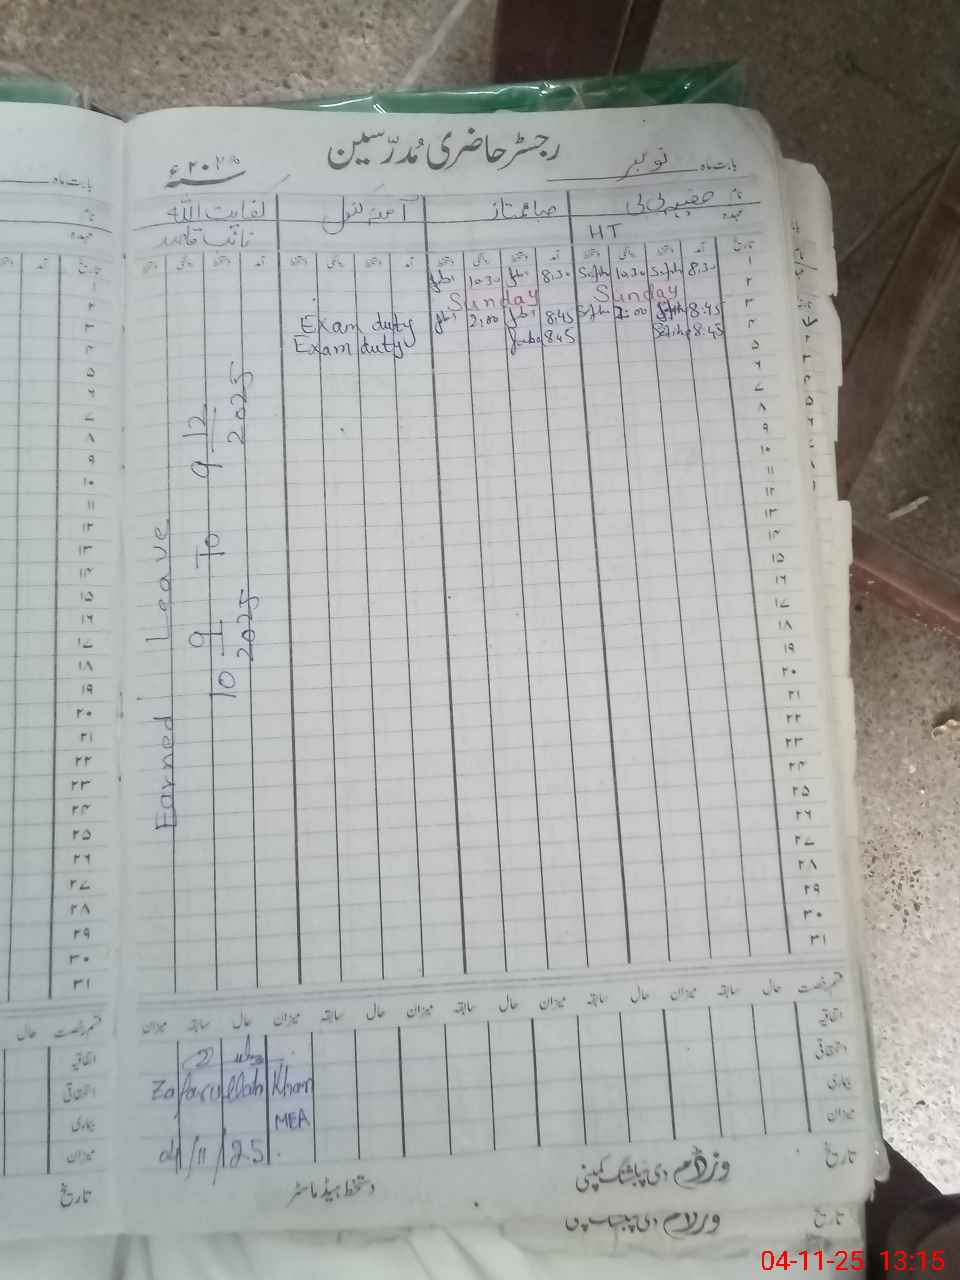 رجسٹر حاضری مُدرّسین
بابت ماہ نومبر ۲۰۲۵ء
نام حفیظہ بی بی صبا ممتاز آمنہ کنول کفایت اللہ
عہدہ HT نائب قاصد
تاریخ آمد دستخط روانگی دستخط آمد دستخط روانگی دستخط آمد دستخط روانگی دستخط آمد دستخط روانگی دستخط
۱ 8.30 10.30 8.30 10.30
۲ Sunday Sunday
۳ 8:45 2:00 8:45 2:00 Exam duty
۴ 8:45 8:45 Exam duty
۵
۶
۷
۸
۹
۱۰
۱۱
۱۲
۱۳
۱۴
۱۵
۱۶
۱۷
۱۸
۱۹
۲۰
۲۱
۲۲
۲۳
۲۴
۲۵
۲۶
۲۷
۲۸
۲۹
۳۰
۳۱
Earned Leave
10 9 2025 To 9 12 2025
قسم رخصت حال سابقہ میزان حال سابقہ میزان حال سابقہ میزان حال سابقہ میزان
اتفاقیہ
استحقاقی
بیماری
میزان
Zafarullah Khan
MEA
04/11/25
تاریخ
دستخط ہیڈ ماسٹر
وزڈم دی پبلشنگ کمپنی
بابت ماہ
نام
عہدہ
تاریخ آمد
قسم رخصت حال
اتفاقیہ
استحقاقی
بیماری
میزان
تاریخ
04-11-25 13:15